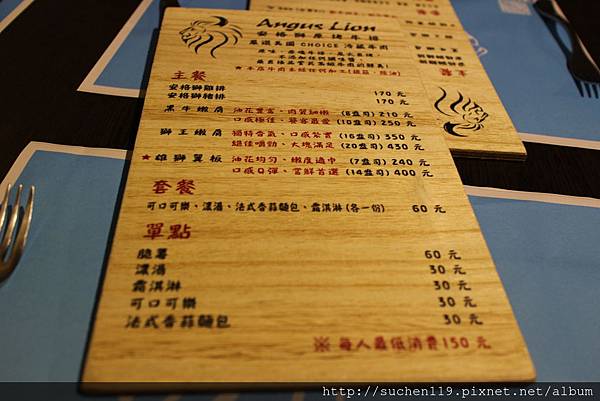 Angus Lion
安格獅原燒牛排
嚴選美國 CHOICE 冷藏牛肉
主餐
安格獅雞排 170 元
安格獅豬排 170 元
黑牛嫩肩 油花豐富、肉質細嫩 (8盎司) 210 元
口感極佳、饕客最愛 (10盎司) 250 元
獅王嫩肩 獨特香氣、口感紮實 (16盎司) 350 元
絕佳嚼勁、大塊滿足 (20盎司) 430 元
★雄獅翼板 油花均勻、嫩度適中 (7盎司) 240 元
口感Q彈、嘗鮮首選 (14盎司) 400 元
套餐
可口可樂、濃湯、法式香蒜麵包、霜淇淋(各一份) 60 元
單點
脆薯 60 元
濃湯 30 元
霜淇淋 30 元
可口可樂 30 元
法式香蒜麵包 30 元
※ 每人最低消費150 元
http://suchen119.pixnet.net/album